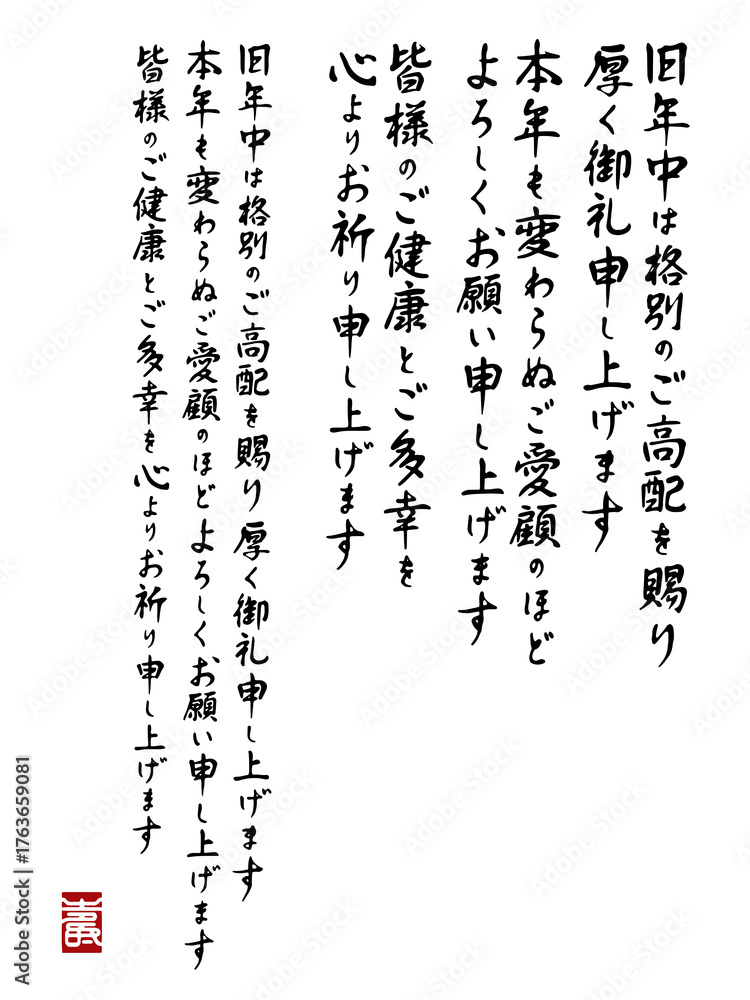 旧年中は格別のご高配を賜り
厚く御礼申し上げます
本年も変わらぬご愛顧のほど
よろしくお願い申し上げます
皆様のご健康とご多幸を
心よりお祈り申し上げます
旧年中は格別のご高配を賜り厚く御礼申し上げます
本年も変わらぬご愛顧のほどよろしくお願い申し上げます
皆様のご健康とご多幸を心よりお祈り申し上げます
寿
Adobe Stock | #1763659081